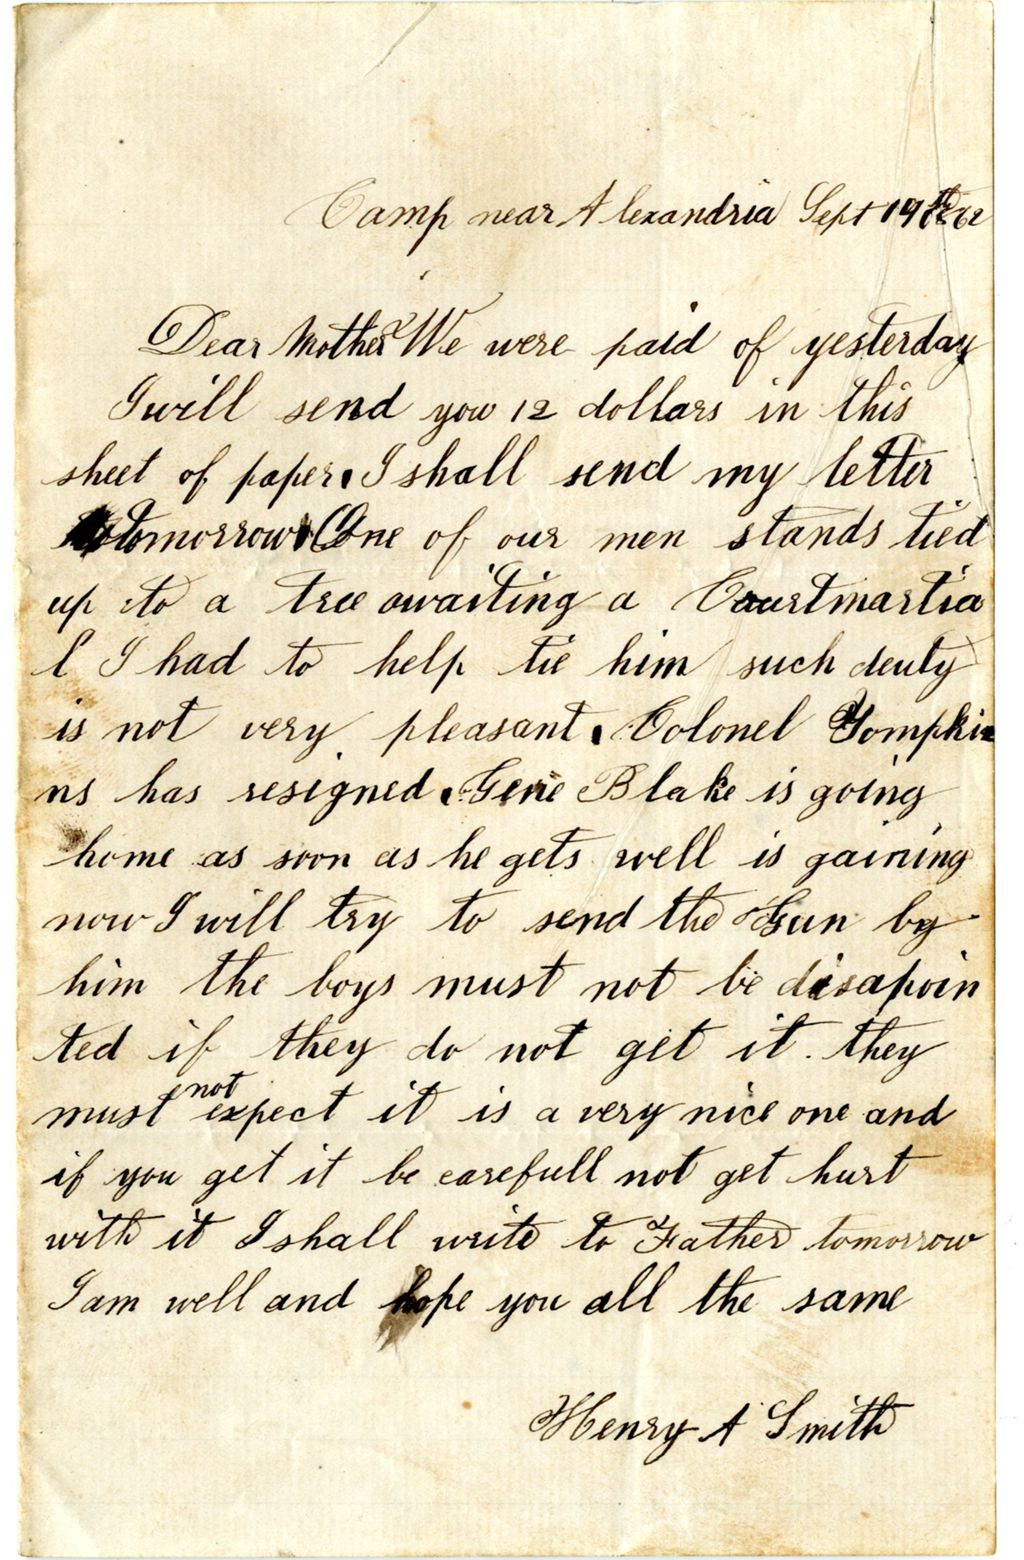 Camp near Alexandria Sept 19th 62
Dear Mother We were paid of yesterday
I will send you 12 dollars in this
sheet of paper. I shall send my letter
tomorrow. One of our men stands tied
up to a tree awaiting a Courtmartia
l I had to help tie him such deuty
is not very pleasant. Colonel Tompki
ns has resigned. Gene Blake is going
home as soon as he gets well is gaining
now I will try to send the Gun by
him the boys must not be disapoin
ted if they do not get it. they
must not expect it is a very nice one and
if you get it be carefull not get hurt
with it I shall write to Father tomorrow
I am well and hope you all the same
Henry A Smith